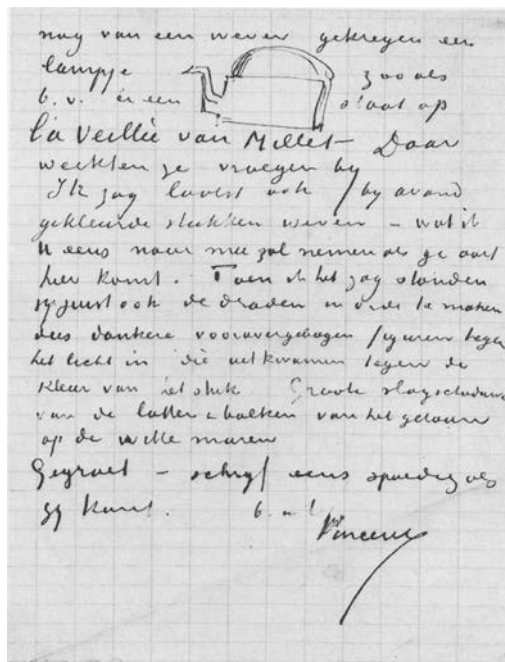 nog van een wever gekregen een
lampje zooals
b.v. er een staat op
la Veillée van Millet – Daar
werkten ze vroeger by
Ik zag laatst ook by avond
gekleurde stukken weven – waar ik
U eens naar mee zal nemen als ge ooit
hier komt. Toen ik het zag stonden
ze juist ook de draden in orde te maken
dus donkere voorovergebogen figuren tegen
het licht in die uitkwamen tegen de
kleur van het stuk Groote slagschaduwen
van de latten & balken van het getouw
op de witte muren
Gegroet – schryf eens spoedig als
gy kunt. b. a. t.
Vincent